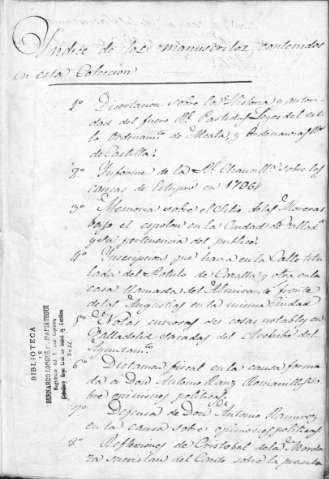 Indice de los manuscritos contenidos
en esta Coleccion
1º Disertacion sobre la Historia, y autori-
dad del fuero Rl. Partidas, Leyes del estilo
Ordenamto. de Alcala, y Ordenanzas
de Castilla.
2º Informe de la Rl. Chancilla. sobre las
causas de Estupro en 1796
3º Memoria sobre el sitio de las Moreras
bajo el espolon en la Ciudad de Vallad
y su pertenencia del publico.
4º Inscripcion que havia en la Calle titu-
lada del Rotulo de Cazalla y otra en la
casa llamada del Almirante frente
de las Angustias en la misma Ciudad
5º Notas curiosas de cosas notables en
Valladolid sacadas del Archivo del
Ayuntamto.
6º Dictamen fiscal en la causa forma-
da a Don Antonio Ranz Romanillos so-
bre opiniones politicas.
7º Defensa de Don Antonio Ramirez
en la causa sobre opiniones politicas
8º Reflexiones de Cristobal de la Mordaza
sacristan del Corito sobre la
BIBLIOTECA
DE